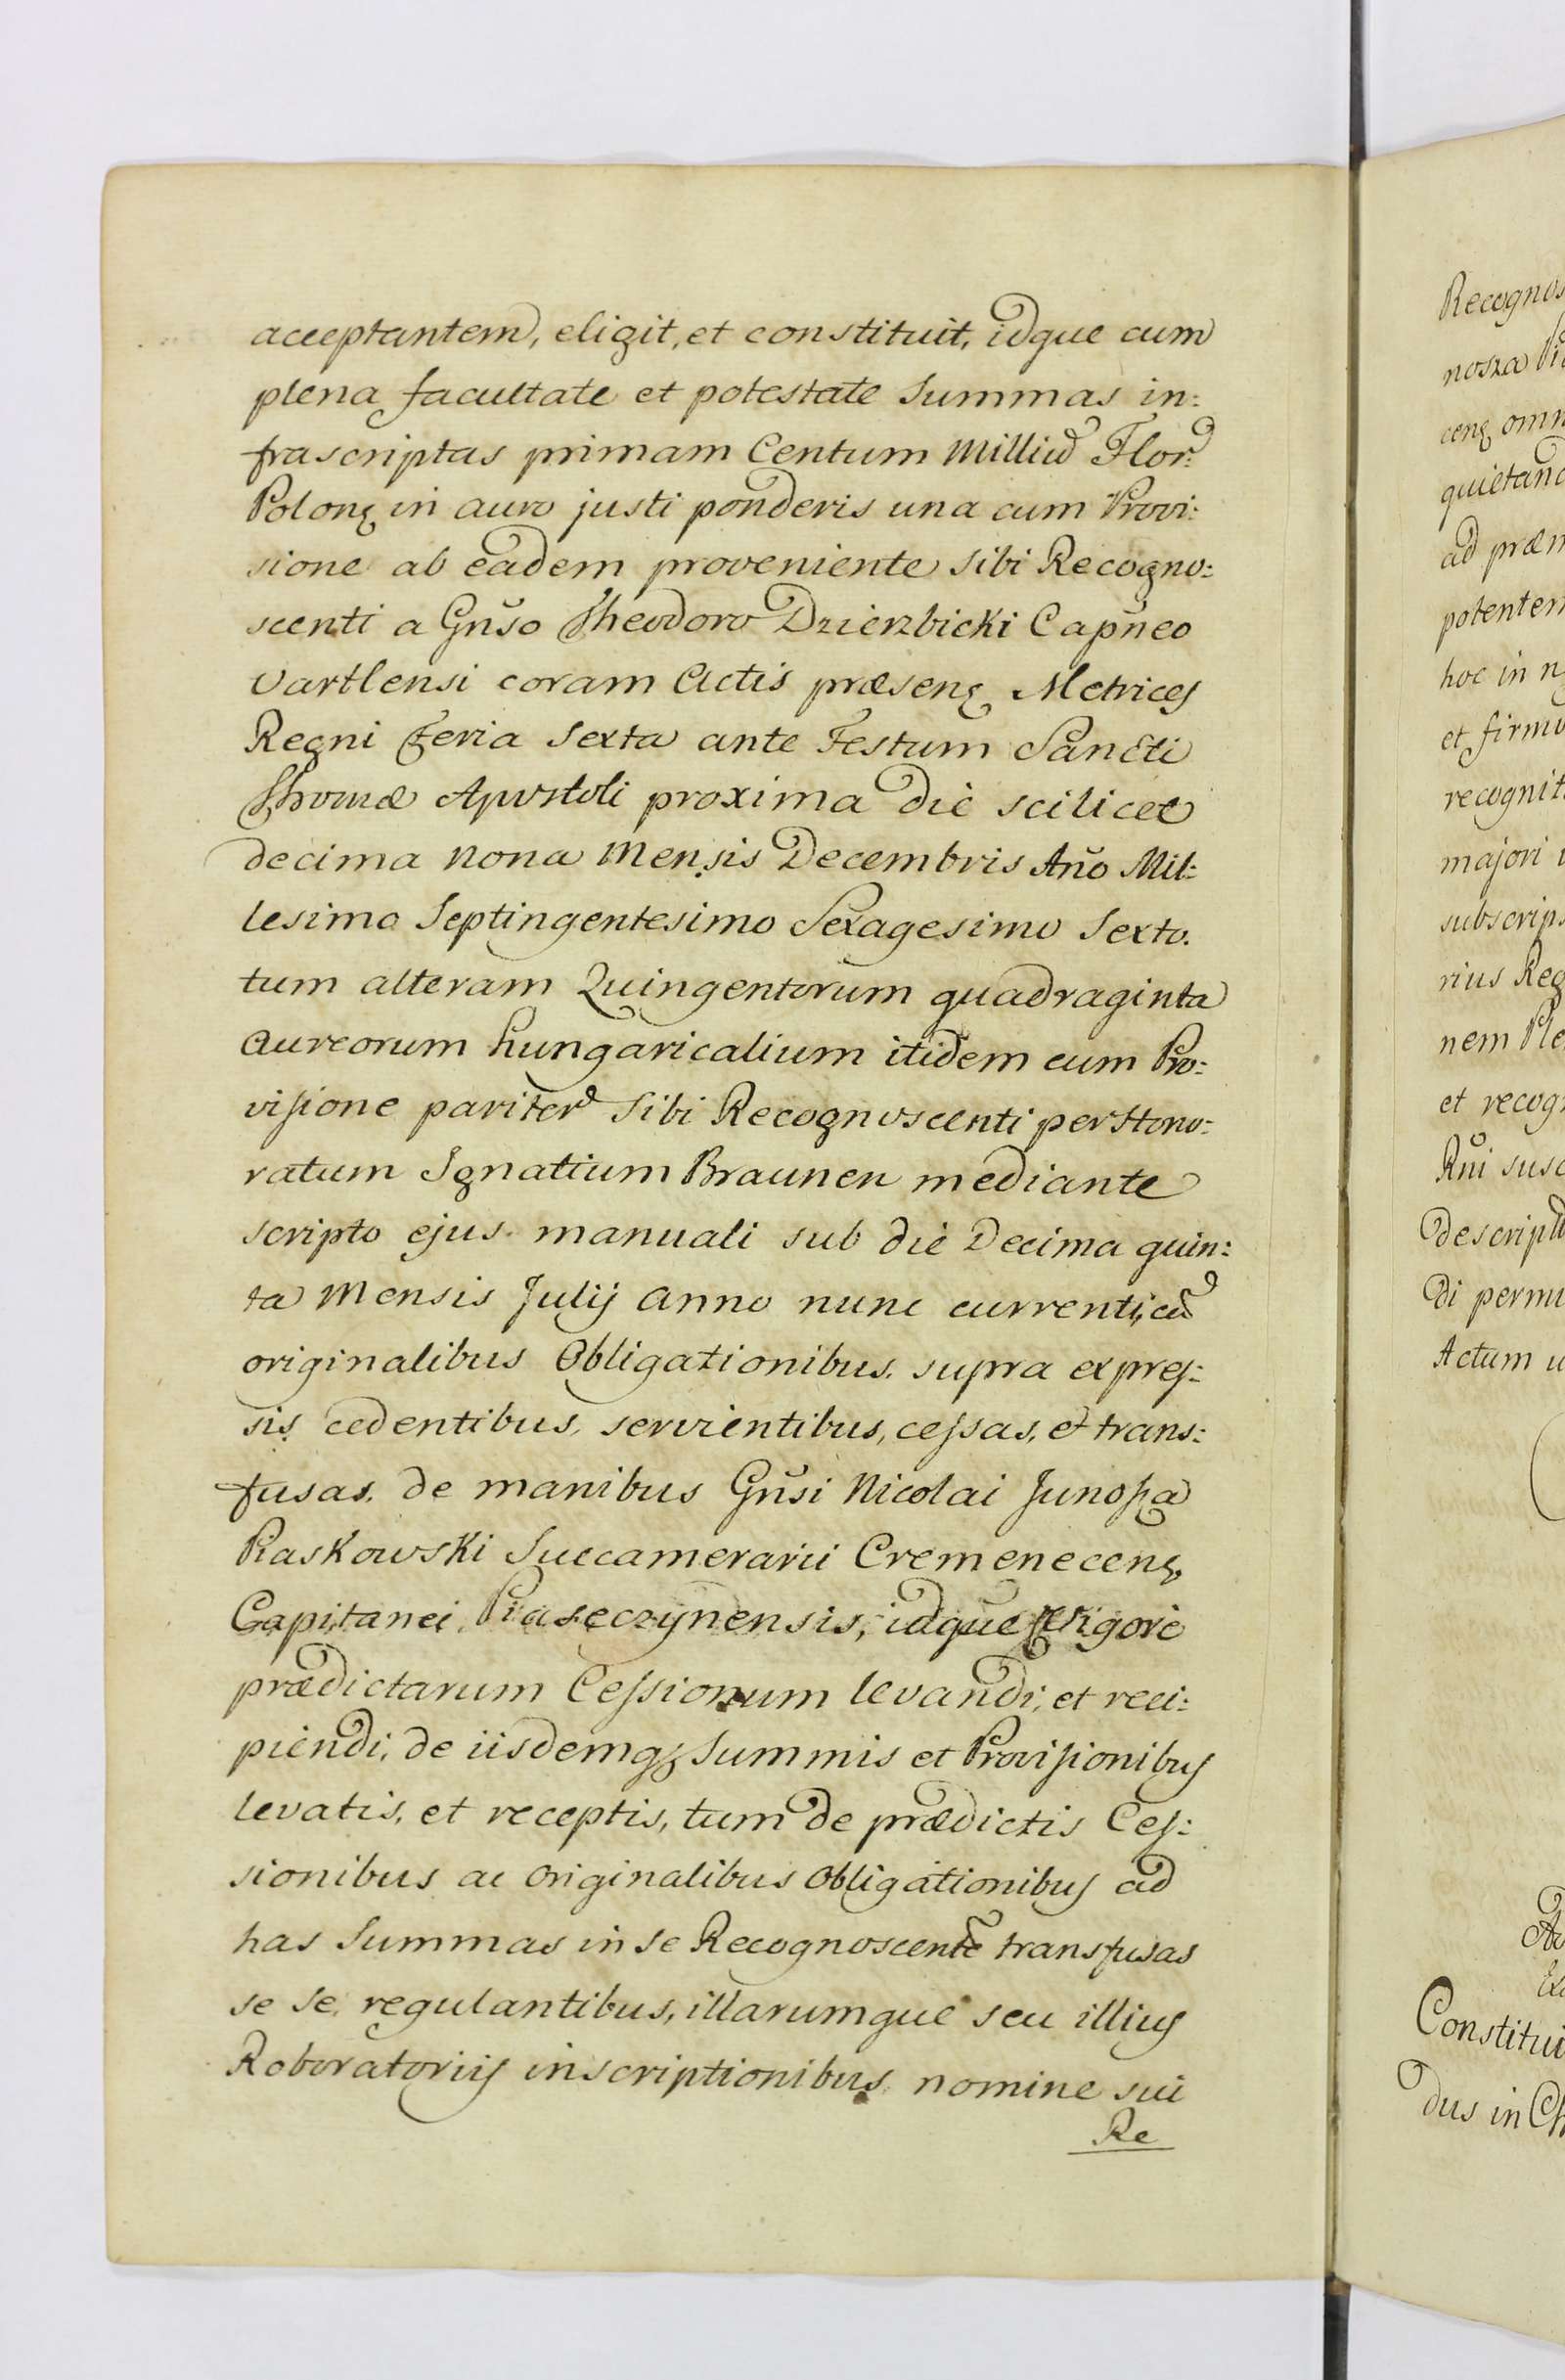 acceptantem, eligit, et constituit, idque cum
plena facultate et potestate Summas in:
frascriptas primam Centum Milliũ Flor:
Polonę in auro justi ponderis una cum Provi:
sione ab eadem proveniente sibi Recogno:
scenti a Gnũso Theodoro Dzierzbicki Capũeo
Vartlensi coram Actis præsenę Metrices
Regni Feria Sexta ante Festum Sancti
Thomæ Apostoli proxima die scilicet
decima nona Mensis Decembris Año Mil:
lesimo Septingentesimo Sexagesimo Sexto.
tum alteram Quingentorum quadraginta
aureorum hungaricalium itidem cum Pro:
visione pariter Sibi Recognoscenti per Hono:
ratum Ignatium Braunen mediante
scripto ejus manuali sub die Decima quin:
ta Mensis Julij anno nunc currenti, cũ
originalibus Obligationibus. supra expres:
sis cedentibus, servientibus, cessas, et trans:
fusas. de manibus Gnũsi Nicolai Junosza
Piaskowski Succamerarii Cremenecenę
Capitanei Piaseczynensis, idque Vigore
prædictarum Cessionum levandi, et reci:
piendi, de iisdemqz Summis et Provisionibus
levatis, et receptis, tum de prædictis Ces:
sionibus ac Originalibus Obligationibus ad
has Summas in se Recognoscentẽ transfusas
se se regulantibus, illarumque seu illius
Roboratoriis inscriptionibus nomine sui
Re
Recognos
nosza Pia
cenę omn
quietand
ad præm
potentem
hoc in n
et firmo
recognit
majori
subscrips
rius Reg
nem Ple
et recog
Rñi susc
descript
di permi
Actum u
Constitui
dus in Ch